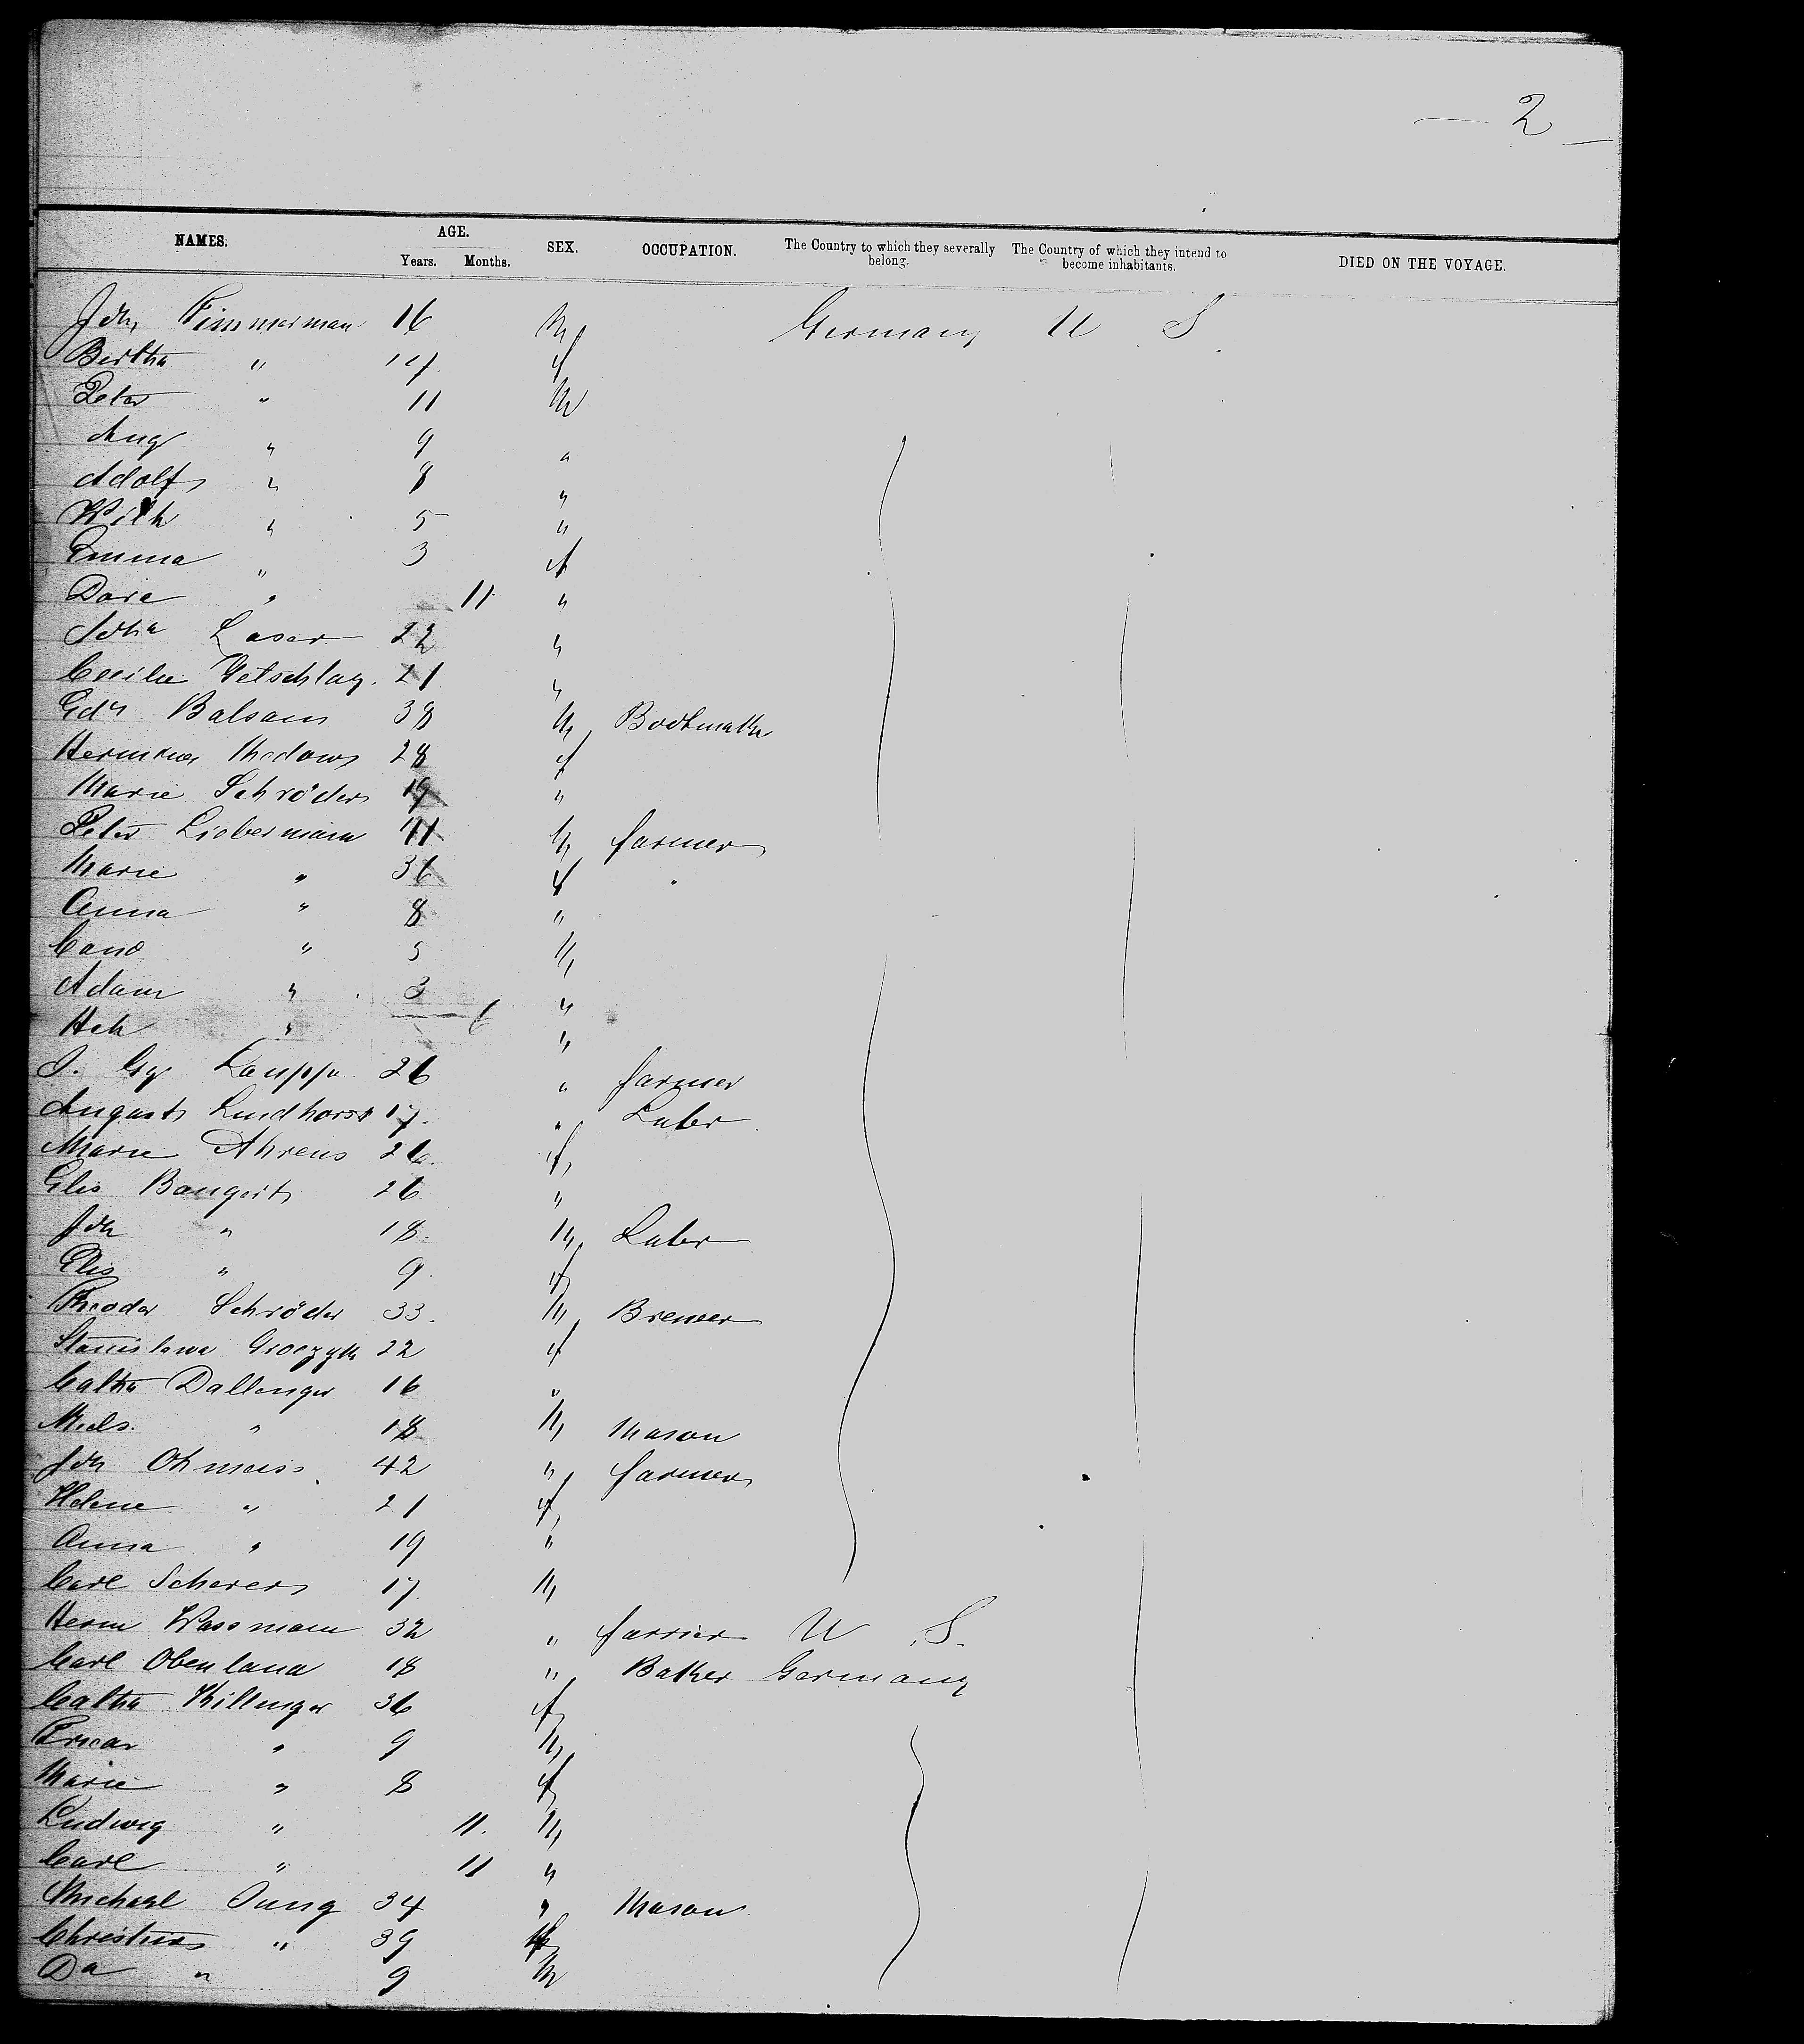 — 2 —
NAMES. AGE. SEX. OCCUPATION. The Country to which they severally belong. The Country of which they intend to become inhabitants. DIED ON THE VOYAGE.
Years. Months.
Joh. Timmerman 16 M Germany U S
Bertha " 14 f
Peter " 11 M
Aug " 9 "
Adolf " 8 "
Wilh " 5 "
Emma " 3 f
Dora " 11 "
Joha Laser 22 "
Cecilie 21 "
Edu Balsam 38 M
28 f
Marie Schröder 19 "
Peter Liebermann 41 M farmer
Marie " 36 f "
Anna " 8 "
" 5 M
Adam " 3 "
Hch " 6 "
J. Gg 26 " farmer
August Lindhorst 17 " Labr
Marie Ahrens 26 f
Elis Bangert 26 "
Joh " 18 M Labr
Elis " 9 f
Theodor Schröder 33 M Brewer
Stanislawa 22 f
Catha Dallenger 16 "
" 18 M Mason
Joh Ohmeiss 42 " farmer
Helene " 21 f
Anna " 19 "
Carl Scherer 17 M
Herm Wassmann 32 " farrier U S
Carl Obenland 18 " Baker Germany
Catha Killinger 36 f
" 9 M
Marie " 8 f
Ludwig " 11 M
Carl " 11 "
Michael Jung 34 " Mason
Christine " 39 f
Da " 9 M